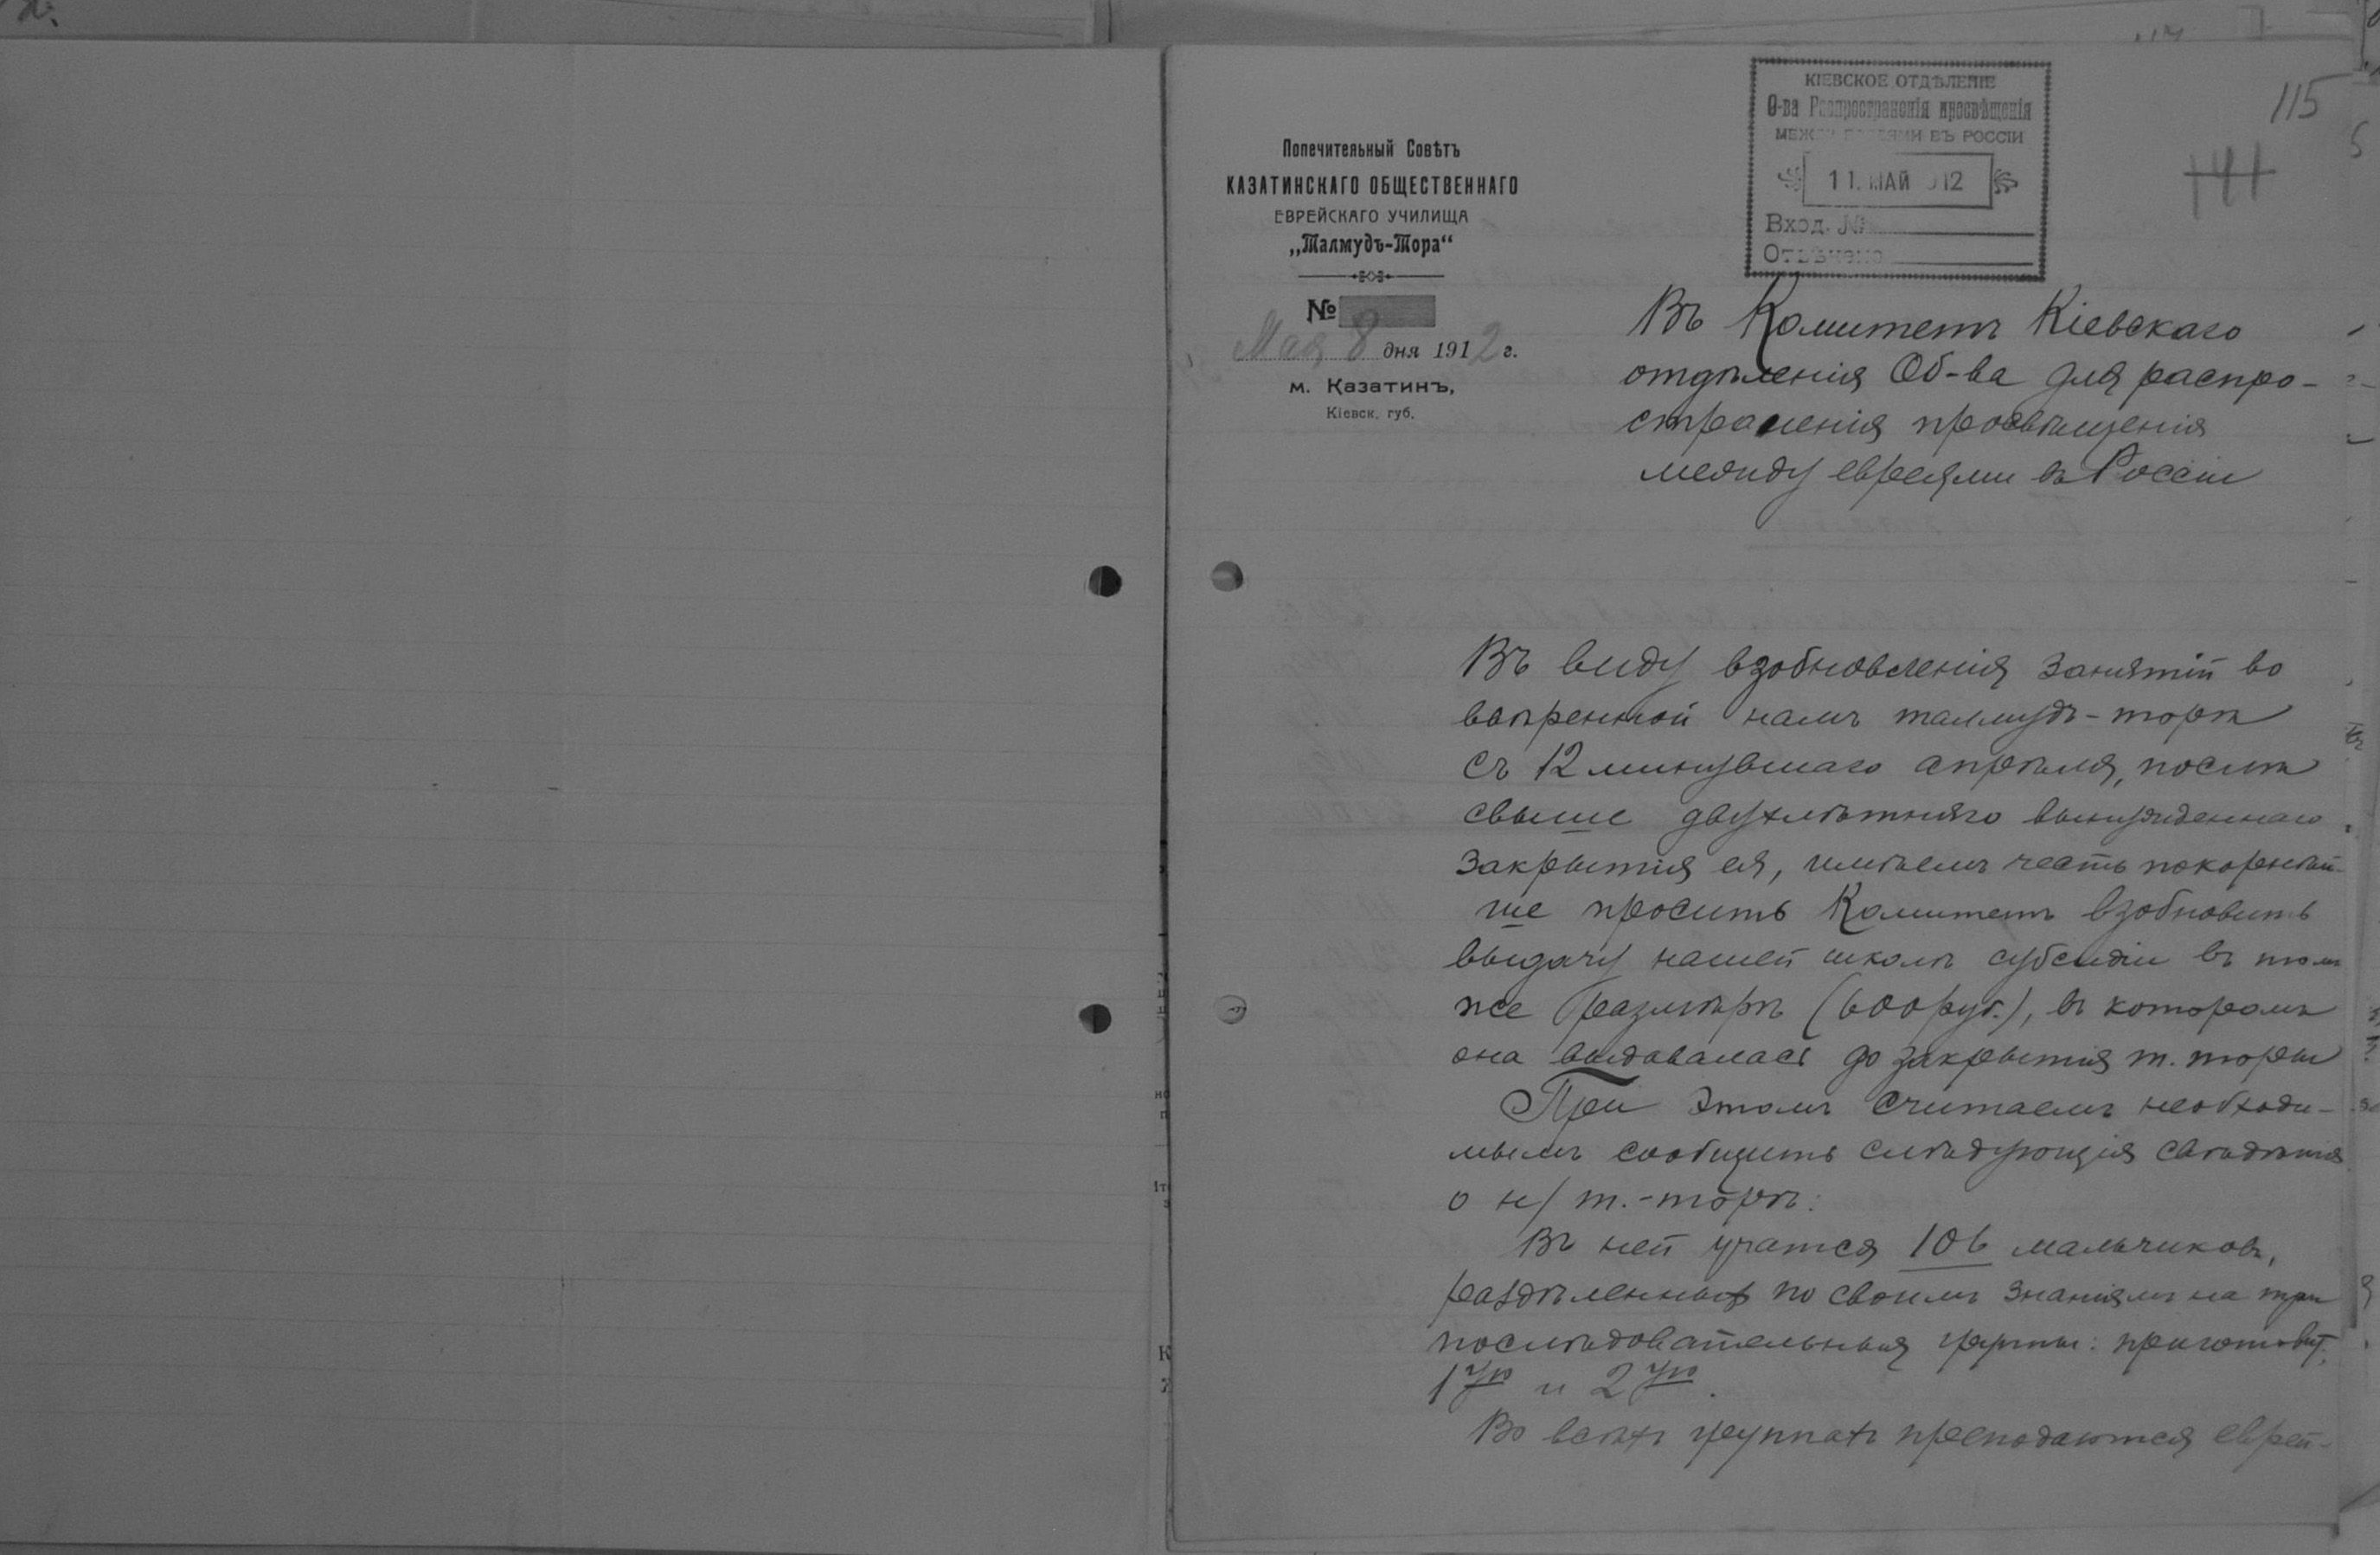 КІЕВСКОЕ ОТДѢЛЕНІЕ
О-ва Распространенія просвѣщенія
МЕЖДУ ЕВРЕЯМИ ВЪ РОССІИ
11. МАЙ 912
Вход. №
Отвѣчено
115
141
Попечительный Совѣтъ
КАЗАТИНСКАГО ОБЩЕСТВЕННАГО
ЕВРЕЙСКАГО УЧИЛИЩА
„Талмудъ-Тора“
№
Мая 8 дня 1912 г.
м. Казатинъ,
Кіевск. губ.
Въ Комитетъ Кіевскаго
отдѣленія Об-ва для распро-
страненія просвѣщенія
между евреями въ Россіи
Въ виду взобновленія занятій во
ввѣренной намъ талмудъ-торѣ
съ 12 минувшаго апрѣля, послѣ
свыше двухлѣтняго вынужденнаго
закрытія ея, имѣемъ честь покорнѣй-
ше просить Комитетъ взобновить
выдачу нашей школѣ субсидіи въ том
же размѣрѣ (600 руб.), въ которомъ
она выдавалась до закрытія т. торы
При этомъ считаемъ необходи-
мымъ сообщить слѣдующія свѣдѣнія
о н/ т.-торѣ:
Въ ней учатся 106 мальчиковъ,
раздѣленныхъ по своимъ знаніямъ на три
послѣдовательныя группы: приготовит,
1ую и 2ую.
Во всѣхъ группахъ преподаются еврей-